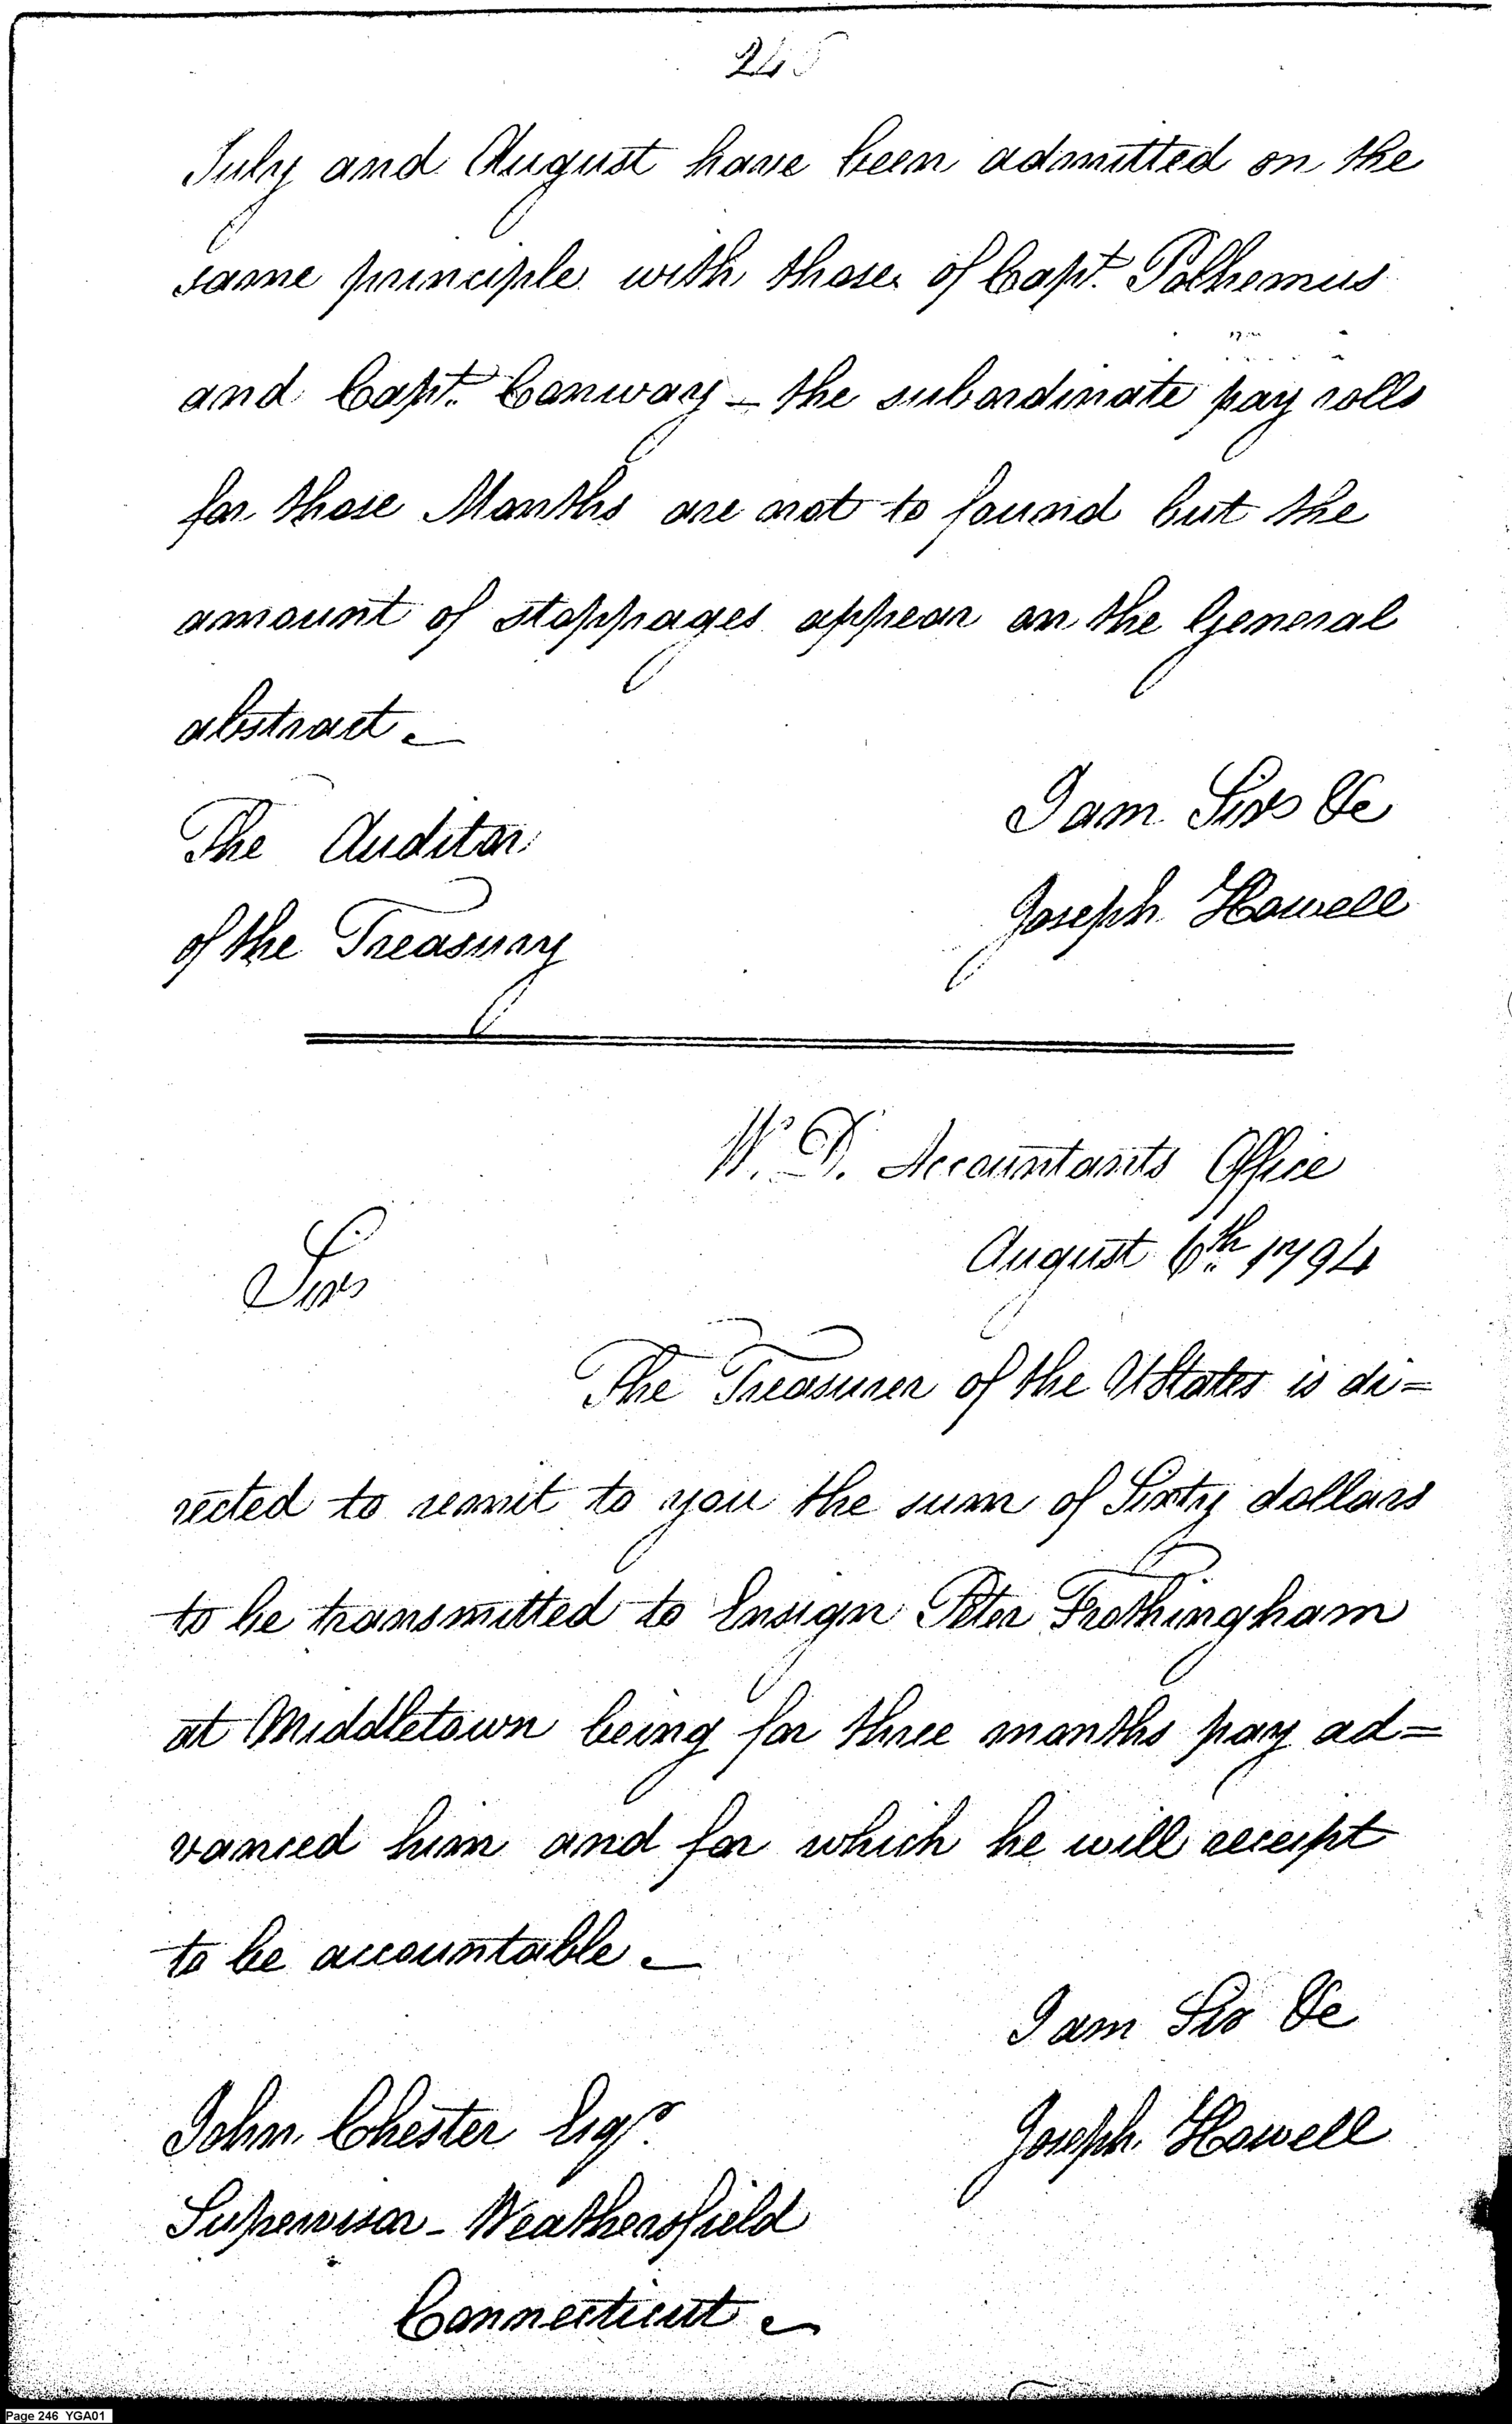 245
July and August have been admitted on the
same principle with those of Capt. Polhemus
and Capt. Conway - the subordinate pay rolls
for those Months are not to found but the
amount of stoppages appear on the General
abstract.
I am Sir &c
The Auditor
Joseph Howell
of the Treasury
W. D. Accountants Office
August 6th 1794
Sir
The Treasurer of the UStates is di=
rected to remit to you the sum of Sixty dollars
to be transmitted to Ensign Peter Frothingham
at Middletown being for three months pay ad=
vanced him and for which he will receipt
to be accountable.
I am Sir &c
John Chester Esqr.
Joseph Howell
Supervisor - Weathersfield
Connecticut
Page 246 YGA01